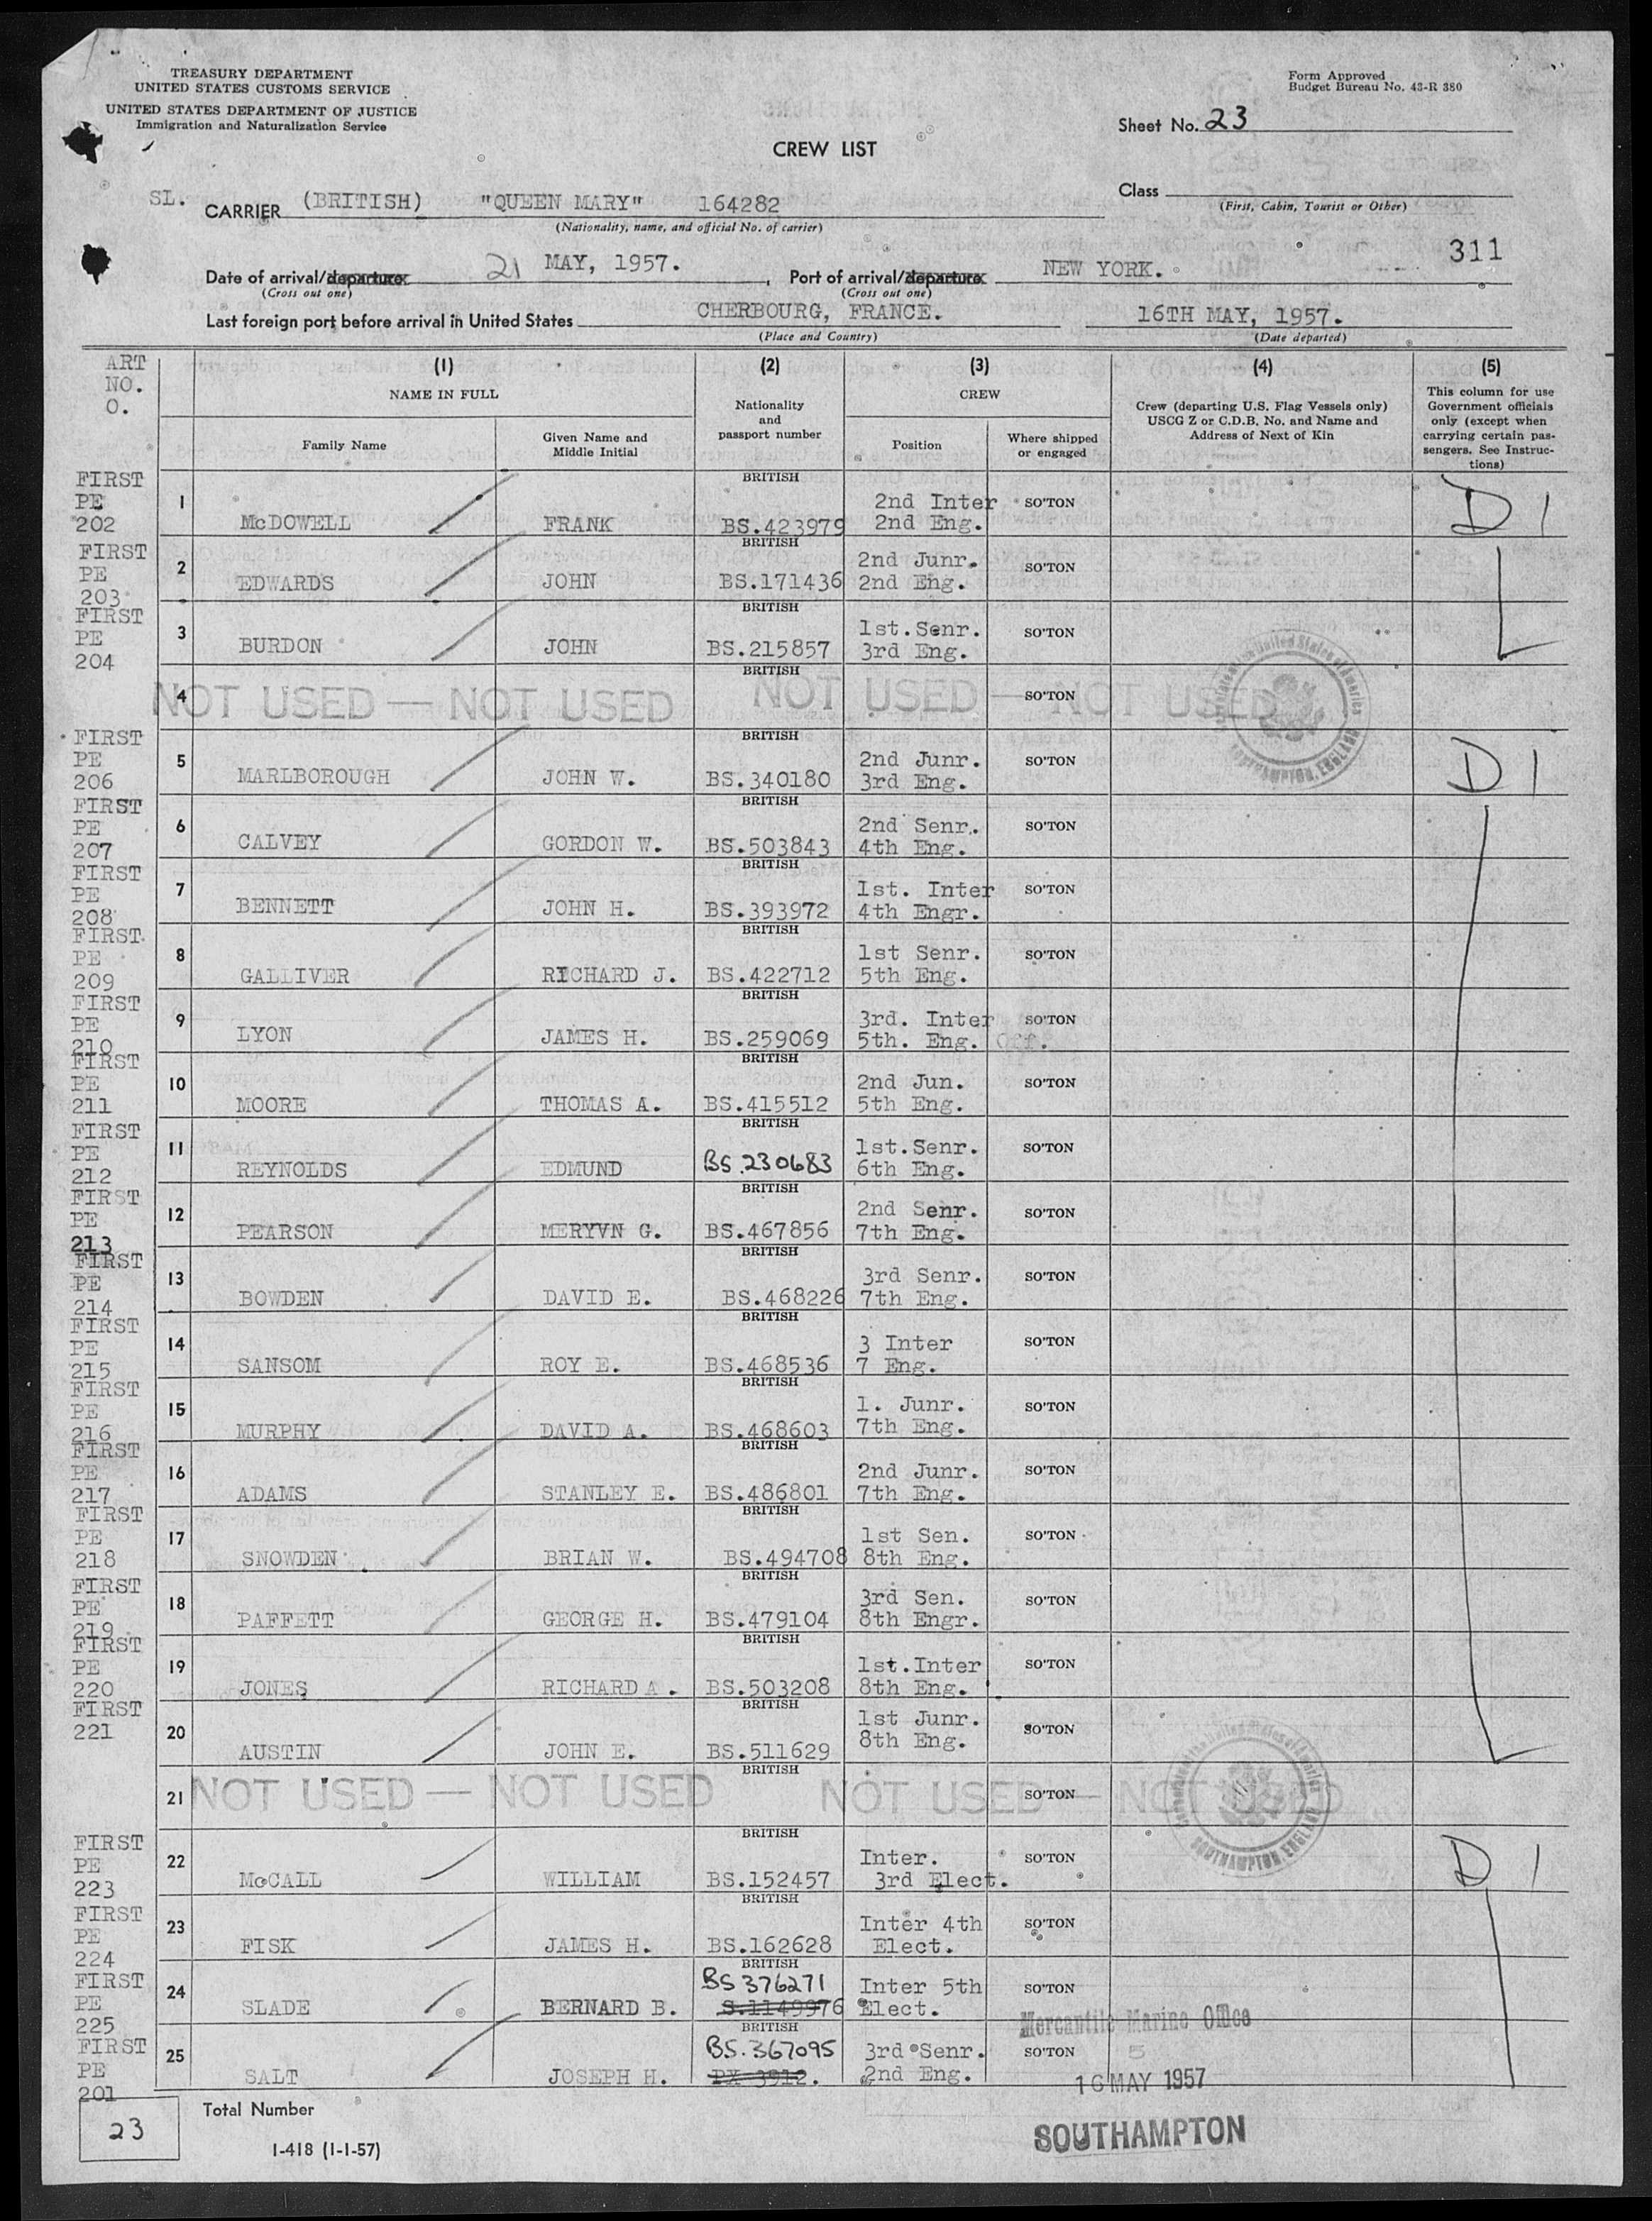 TREASURY DEPARTMENT
UNITED STATES CUSTOMS SERVICE
UNITED STATES DEPARTMENT OF JUSTICE
Immigration and Naturalization Service
Form Approved
Budget Bureau No. 43-R 380
Sheet No. 23
CREW LIST
SL. CARRIER (BRITISH) "QUEEN MARY" 164282
(Nationality, name, and official No. of carrier)
Class
(First, Cabin, Tourist or Other)
311
Date of arrival/departure 21 MAY, 1957. Port of arrival/departure NEW YORK.
(Cross out one) (Cross out one)
Last foreign port before arrival in United States CHERBOURG, FRANCE. 16TH MAY, 1957.
(Place and Country) (Date departed)
ART NO. O.
(1) (2) (3) (4) (5)
NAME IN FULL
Family Name
Given Name and Middle Initial
Nationality and passport number
CREW
Position
Where shipped or engaged
Crew (departing U.S. Flag Vessels only) USCG Z or C.D.B. No. and Name and Address of Next of Kin
This column for use Government officials only (except when carrying certain passengers. See Instructions)
FIRST PE 202 1 McDOWELL FRANK BRITISH BS.423979 2nd Inter 2nd Eng. SO'TON D 1
FIRST PE 203 2 EDWARDS JOHN BRITISH BS.171436 2nd Junr. 2nd Eng. SO'TON
FIRST PE 204 3 BURDON JOHN BRITISH BS.215857 1st.Senr. 3rd Eng. SO'TON
4 NOT USED — NOT USED BRITISH NOT USED — NOT USED SO'TON
FIRST PE 206 5 MARLBOROUGH JOHN W. BRITISH BS.340180 2nd Junr. 3rd Eng. SO'TON D 1
FIRST PE 207 6 CALVEY GORDON W. BRITISH BS.503843 2nd Senr. 4th Eng. SO'TON
FIRST PE 208 7 BENNETT JOHN H. BRITISH BS.393972 1st. Inter 4th Engr. SO'TON
FIRST PE 209 8 GALLIVER RICHARD J. BRITISH BS.422712 1st Senr. 5th Eng. SO'TON
FIRST PE 210 9 LYON JAMES H. BRITISH BS.259069 3rd. Inter 5th. Eng. Off. SO'TON
FIRST PE 211 10 MOORE THOMAS A. BRITISH BS.415512 2nd Jun. 5th Eng. SO'TON
FIRST PE 212 11 REYNOLDS EDMUND BRITISH BS.230683 1st.Senr. 6th Eng. SO'TON
FIRST PE 213 12 PEARSON MERYVN G. BRITISH BS.467856 2nd Senr. 7th Eng. SO'TON
FIRST PE 214 13 BOWDEN DAVID E. BRITISH BS.468226 3rd Senr. 7th Eng. SO'TON
FIRST PE 215 14 SANSOM ROY E. BRITISH BS.468536 3 Inter 7 Eng. SO'TON
FIRST PE 216 15 MURPHY DAVID A. BRITISH BS.468603 1. Junr. 7th Eng. SO'TON
FIRST PE 217 16 ADAMS STANLEY E. BRITISH BS.486801 2nd Junr. 7th Eng. SO'TON
FIRST PE 218 17 SNOWDEN BRIAN W. BRITISH BS.494708 1st Sen. 8th Eng. SO'TON
FIRST PE 219 18 PAFFETT GEORGE H. BRITISH BS.479104 3rd Sen. 8th Engr. SO'TON
FIRST PE 220 19 JONES RICHARD A. BRITISH BS.503208 1st.Inter 8th Eng. SO'TON
FIRST 221 20 AUSTIN JOHN E. BRITISH BS.511629 1st Junr. 8th Eng. SO'TON
21 NOT USED — NOT USED BRITISH NOT USED — NOT USED SO'TON
SOUTHAMPTON, ENGLAND
FIRST PE 223 22 McCALL WILLIAM BRITISH BS.152457 Inter. 3rd Elect. SO'TON D 1
FIRST PE 224 23 FISK JAMES H. BRITISH BS.162628 Inter 4th Elect. SO'TON
FIRST PE 225 24 SLADE BERNARD B. BRITISH BS 376271 S.1149976 Inter 5th Elect. SO'TON
FIRST PE 201 25 SALT JOSEPH H. BRITISH BS.367095 PX 3912. 3rd Senr. 2nd Eng. SO'TON
Mercantile Marine Office
5
16 MAY 1957
SOUTHAMPTON
23 Total Number
I-418 (1-1-57)